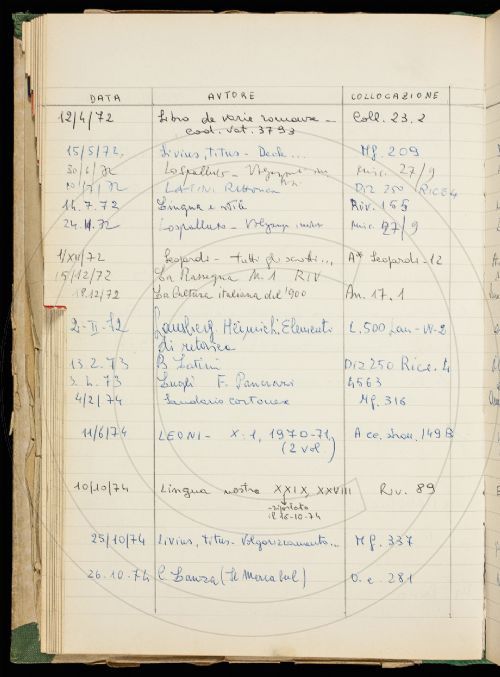 DATA AVTORE COLLOCAZIONE
12/4/72 Libro de varie romanze - Coll. 23.2
cod. vat. 3793
15/5/72. Livius, Titus - Deche ... Mg. 209
30/6/72 Lo Spalluto - Misc. 27/9
Latini Rettorica Diz 250 RICE 4
14.7.72 Lingua e stile Riv. 155
24.11.72 Lospalluto - Misc. 27/9
1/XII/72 Leopardi - Tutti gli scritti... A* Leopardi-12
15/12/72 La Rassegna N. 1 RIV
18.12/72 La Cultura italiana del '900 An. 17.1
2-II-72 Lausberg, Heinrich: Elementi L.500 Lau-W-2
di retorica
13.2.73 B. Latini Diz 250 Rice. 4
3.4.73 Luogli F. Pancrazi 4563
4/2/74 Laudario cortonese Mg. 316
11/6/74 LEONI - X:1, 1970-71, 149B
(2 vol.)
10/10/74 Lingua nostra XXIX, XXVIII Riv. 89
riportato
il 16-10-74
25/10/74 Livius, Titus - Volgarizzamento... Mg. 337
26.10.74 C. Lanza (Le Mercabul) O.e. 281